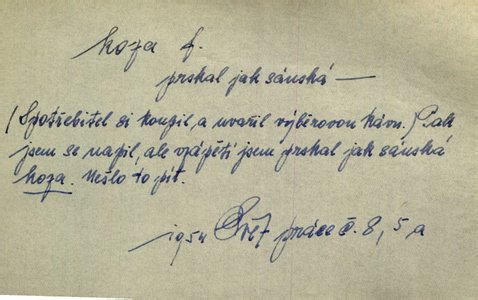 koza f.
prskal jak sánská —
(Spotřebitel si koupil, a uvařil výběrovou kávu.) Pak
jsem se napil, ale vzápětí jsem prskal jak sánská
koza. Nešlo to pít.
1954 Svět práce č. 8, 5, a